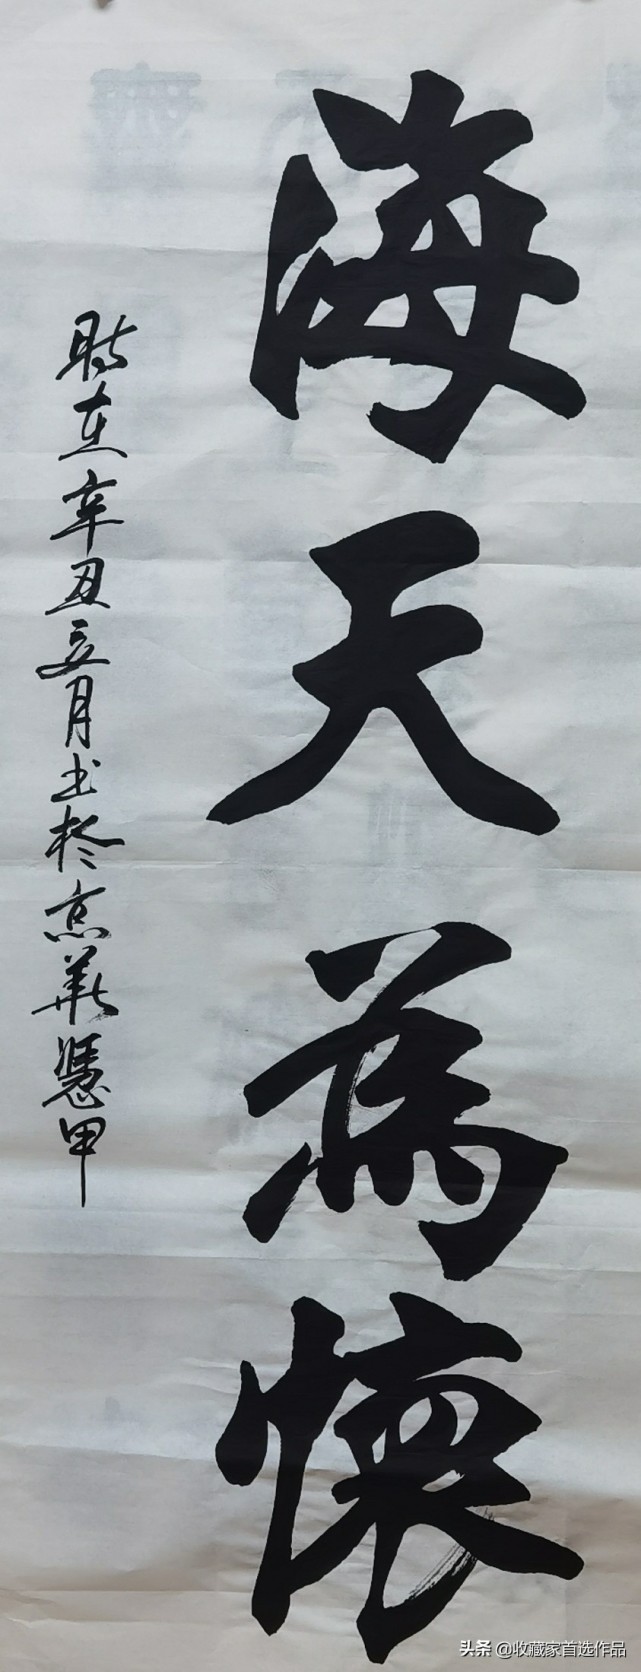 海天為懷
時在辛丑月书於京華甲
头条 @收藏家首选作品